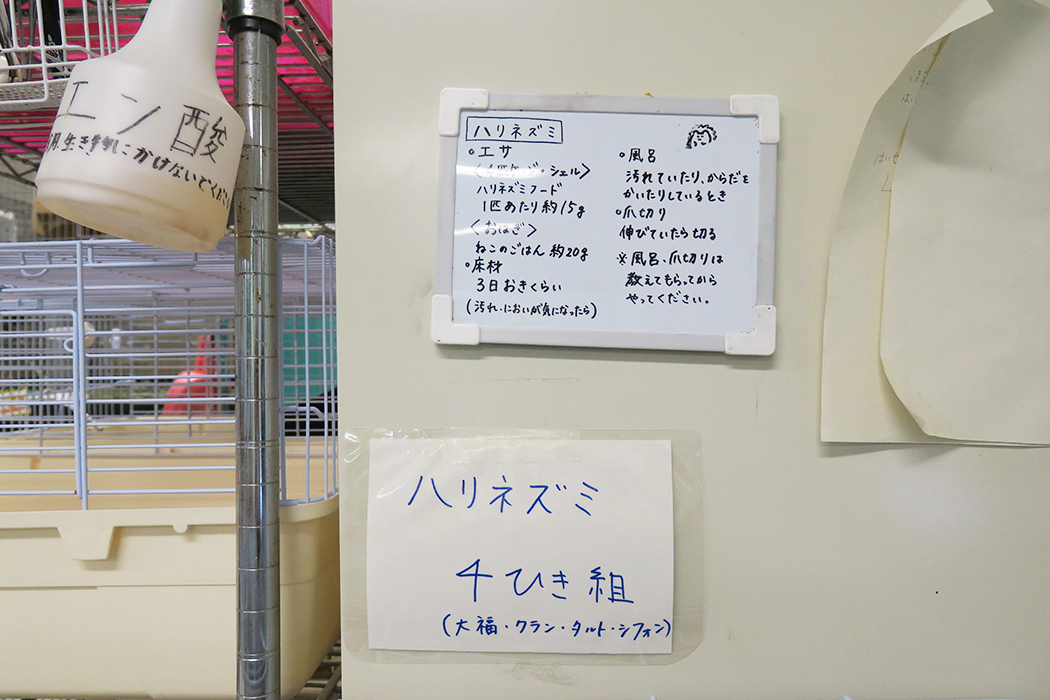 エン酸
生き物にかけないでください
ハリネズミ
○エサ
シェル〉
ハリネズミフード
1匹あたり約15g
〈おはぎ〉
ねこのごはん 約20g
○床材
3日おきくらい
(汚れ・においが気になったら)
○風呂
汚れていたり、からだを
かいたりしているとき
○爪切り
伸びていたら切る
※風呂、爪切りは
教えてもらってから
やってください。
ハリネズミ
4ひき組
(大福・クラン・タルト・シフォン)